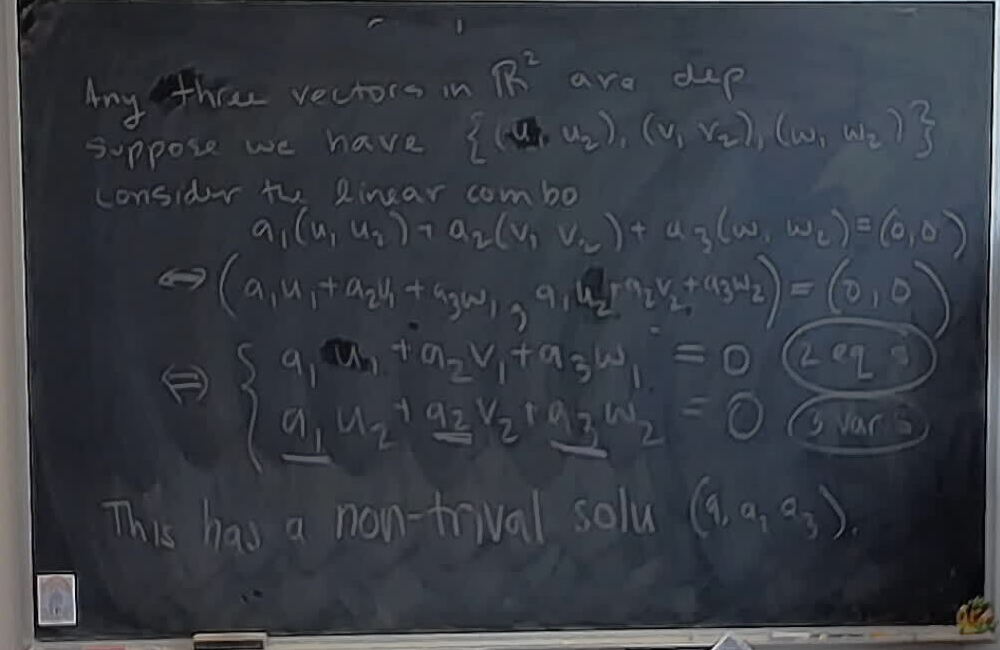 Any three vectors in ℝ² are dep
suppose we have {(u₁ u₂), (v₁ v₂), (w₁ w₂)}
consider the linear combo
a₁(u₁ u₂) + a₂(v₁ v₂) + a₃(w₁ w₂) = (0,0)
⇔ (a₁u₁ + a₂v₁ + a₃w₁, a₁u₂ + a₂v₂ + a₃w₂) = (0,0)
⇔ { a₁u₁ + a₂v₁ + a₃w₁ = 0 2 eqs
a₁u₂ + a₂v₂ + a₃w₂ = 0 3 vars
This has a non-trival solu (a₁ a₂ a₃).